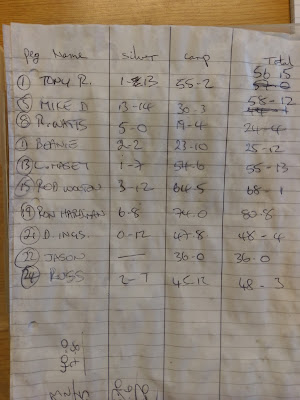 Peg Name silver carp Total
1 TONY R. 1-13 55-2 56-15
5 MIKE D 13-14 30-3 58-12
8 R. WATTS 5-0 19-4 24-4
11 BERNIE 2-2 23-10 25-12
13 1-7 54-6 55-13
15 ROD WOOTON 3-12 64-5 68-1
19 RON HARDMAN 6-8 74-0 80-8
21 D. INGS. 0-12 47-8 48-4
22 JASON — 36-0 36-0
24 RUSS 2-7 45-12 48-3